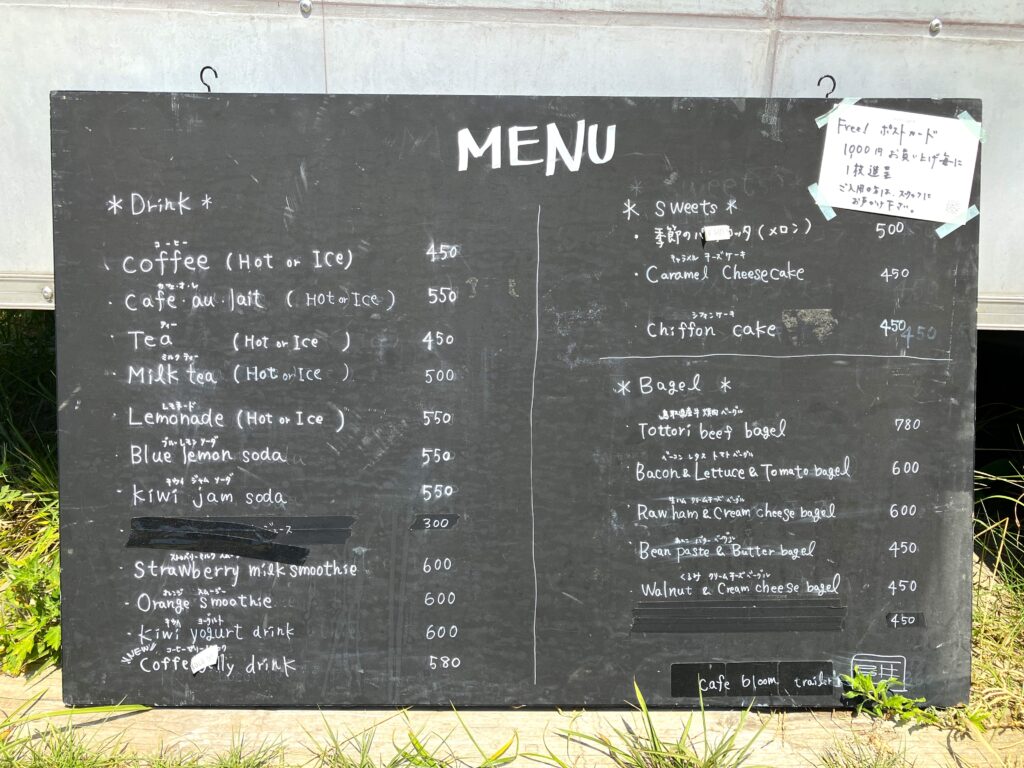 MENU
Free! ポストカード
1000円お買い上げ毎に
1枚進呈
ご入用の方は、スタッフに
お声かけ下さい。
* Drink *
コーヒー
・Coffee (Hot or ICe) 450
カフェ・オ・レ
・Cafe・au・lait (Hot or Ice) 550
ティー
・Tea (Hot or Ice) 450
ミルクティー
・Milk tea (Hot or ICe) 500
レモネード
・Lemonade (Hot or Ice) 550
ブルーレモンソーダ
・Blue lemon soda 550
キウイ ジャム ソーダ
・kiwi jam soda 550
ース 300
ストロベリーミルク スムージー
・Strawberry milk smoothie 600
オレンジ スムージー
・Orange smoothie 600
キウイ ヨーグルト
・kiwi yogurt drink 600
NEW
コーヒーゼリー
・Coffee jelly drink 580
* Sweets *
・季節のパ ッタ(メロン) 500
キャラメル チーズケーキ
・Caramel Cheesecake 450
シフォンケーキ
・Chiffon cake 450
* Bagel *
鳥取県産牛 焼肉ベーグル
・Tottori beef bagel 780
ベーコン レタス トマト ベーグル
・Bacon & Lettuce & Tomato bagel 600
生ハム クリームチーズ ベーグル
・Raw ham & Cream cheese bagel 600
あんこ バター ベーグル
・Bean paste & Butter bagel 450
くるみ クリームチーズベーグル
・Walnut & Cream cheese bagel 450
450
cafe bloom trailer